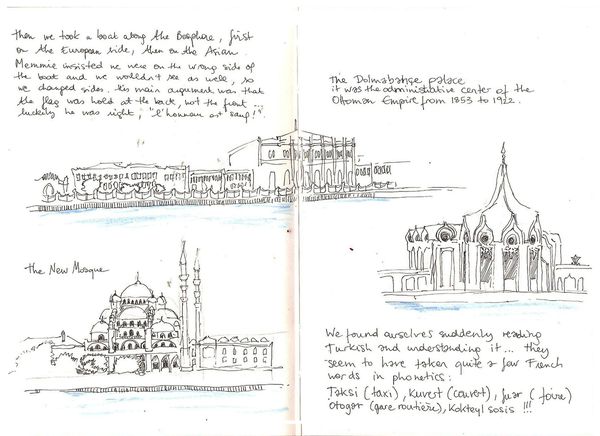 then we took a boat along the Bosphore, first
on the European side, then on the Asian.
Memmie insisted we were on the wrong side of
the boat and we wouldn't see as well, so
we changed sides. His main argument was that
the flag was hold at the back, not the front ...
luckily he was right, "l'honneur est sauf!"
The Dolmabahçe palace
it was the administrative center of the
Ottoman Empire from 1853 to 1922.
The New Mosque
We found ourselves suddenly reading
Turkish and understanding it ... they
seem to have taken quite a few French
words in phonetics:
Taksi (taxi), Kuvert (couvert), fuar (foire)
Otogar (gare routière), Kokteyl sosis !!!